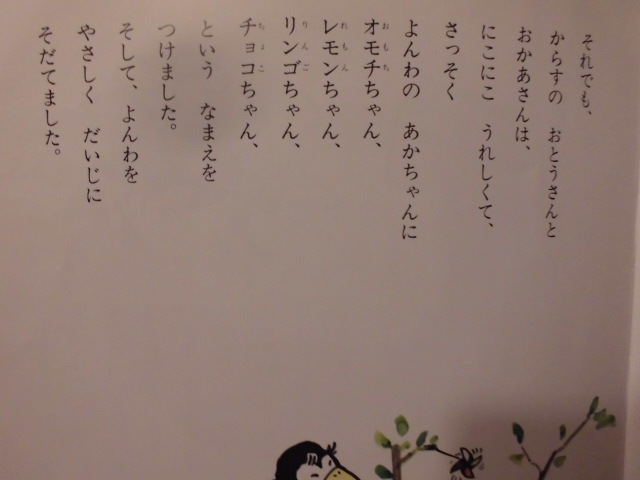 それでも、
からすの　おとうさんと
おかあさんは、
にこにこ　うれしくて、
さっそく
よんわの　あかちゃんに
オモチちゃん、
レモンちゃん、
リンゴちゃん、
チョコちゃん、
という　なまえを
つけました。
そして、よんわを
やさしく　だいじに
そだてました。